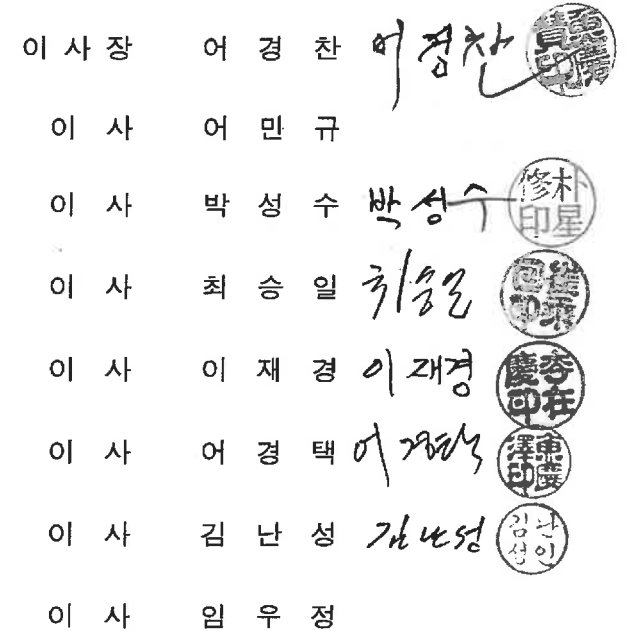 이 사 장 어 경 찬 어경찬
이 사 어 민 규
이 사 박 성 수 박성수 朴星修印
이 사 최 승 일 최승일
이 사 이 재 경 이재경 李在慶印
이 사 어 경 택 어경택 魚慶澤印
이 사 김 난 성 김난성 김난성인
이 사 임 우 정